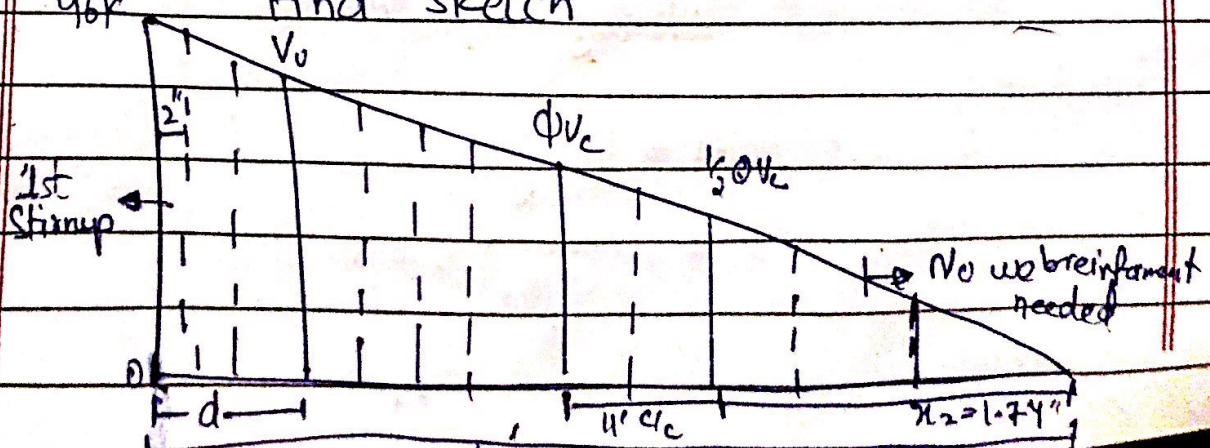 96k And sketch
Vu
2"
ΦVc
1/2 ΦVc
1st
Stirrup
No webreinforment
needed
0
d
11" c/c
x2=1.74"